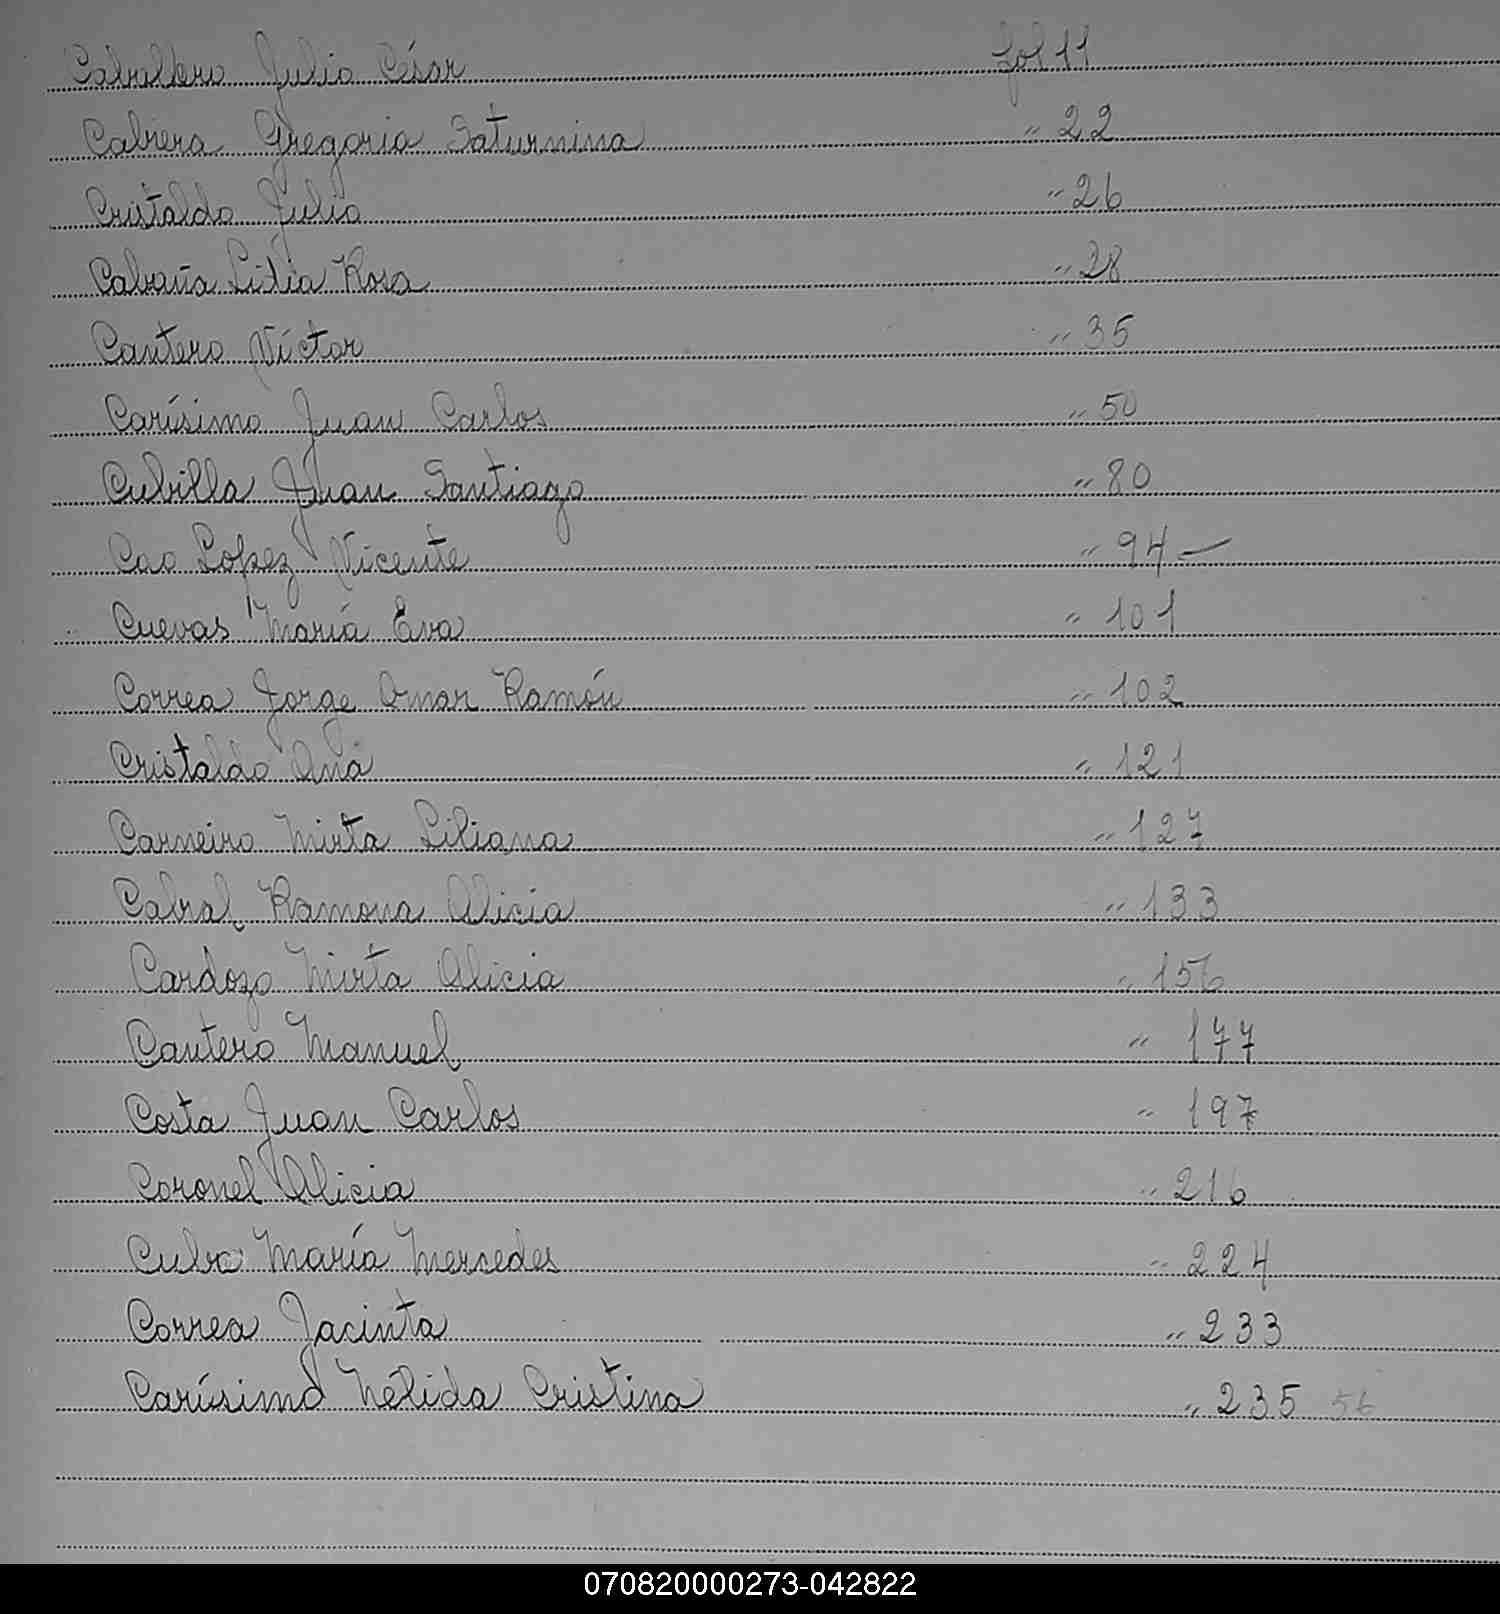 Caballero Julio César fol 11
Cabrera Gregoria Saturnina " 22
Cristaldo Julio " 26
Cabaña Lidia Rosa " 28
Cantero Víctor " 35
Carísimo Juan Carlos " 50
Cubilla Juan Santiago " 80
Cao Lopez Vicente " 94 —
Cuevas María Eva " 101
Correa Jorge Omar Ramón " 102
Cristaldo Ana " 121
Carneiro Mirta Liliana " 127
Cabral Ramona Alicia " 133
Cardozo Mirta Alicia " 156
Cantero Manuel " 177
Costa Juan Carlos " 197
Coronel Alicia " 216
María Mercedes " 224
Correa Jacinta " 233
Carísimo Nélida Cristina " 235 56
070820000273-042822